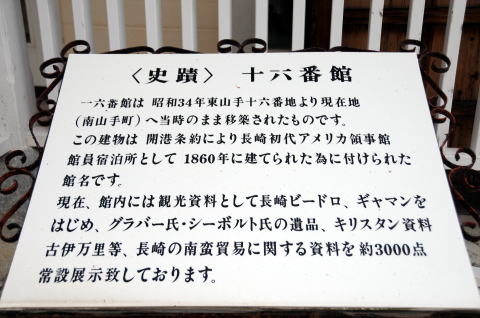 〈史蹟〉 十六番館
一六番館は 昭和34年東山手十六番地より現在地
(南山手町)へ当時のまま移築されたものです。
この建物は 開港条約により長崎初代アメリカ領事館
館員宿泊所として 1860年に建てられた為に付けられた
館名です。
現在、館内には観光資料として長崎ビードロ、ギヤマンを
はじめ、グラバー氏・シーボルト氏の遺品、キリスタン資料
古伊万里等、長崎の南蛮貿易に関する資料を約3000点
常設展示致しております。